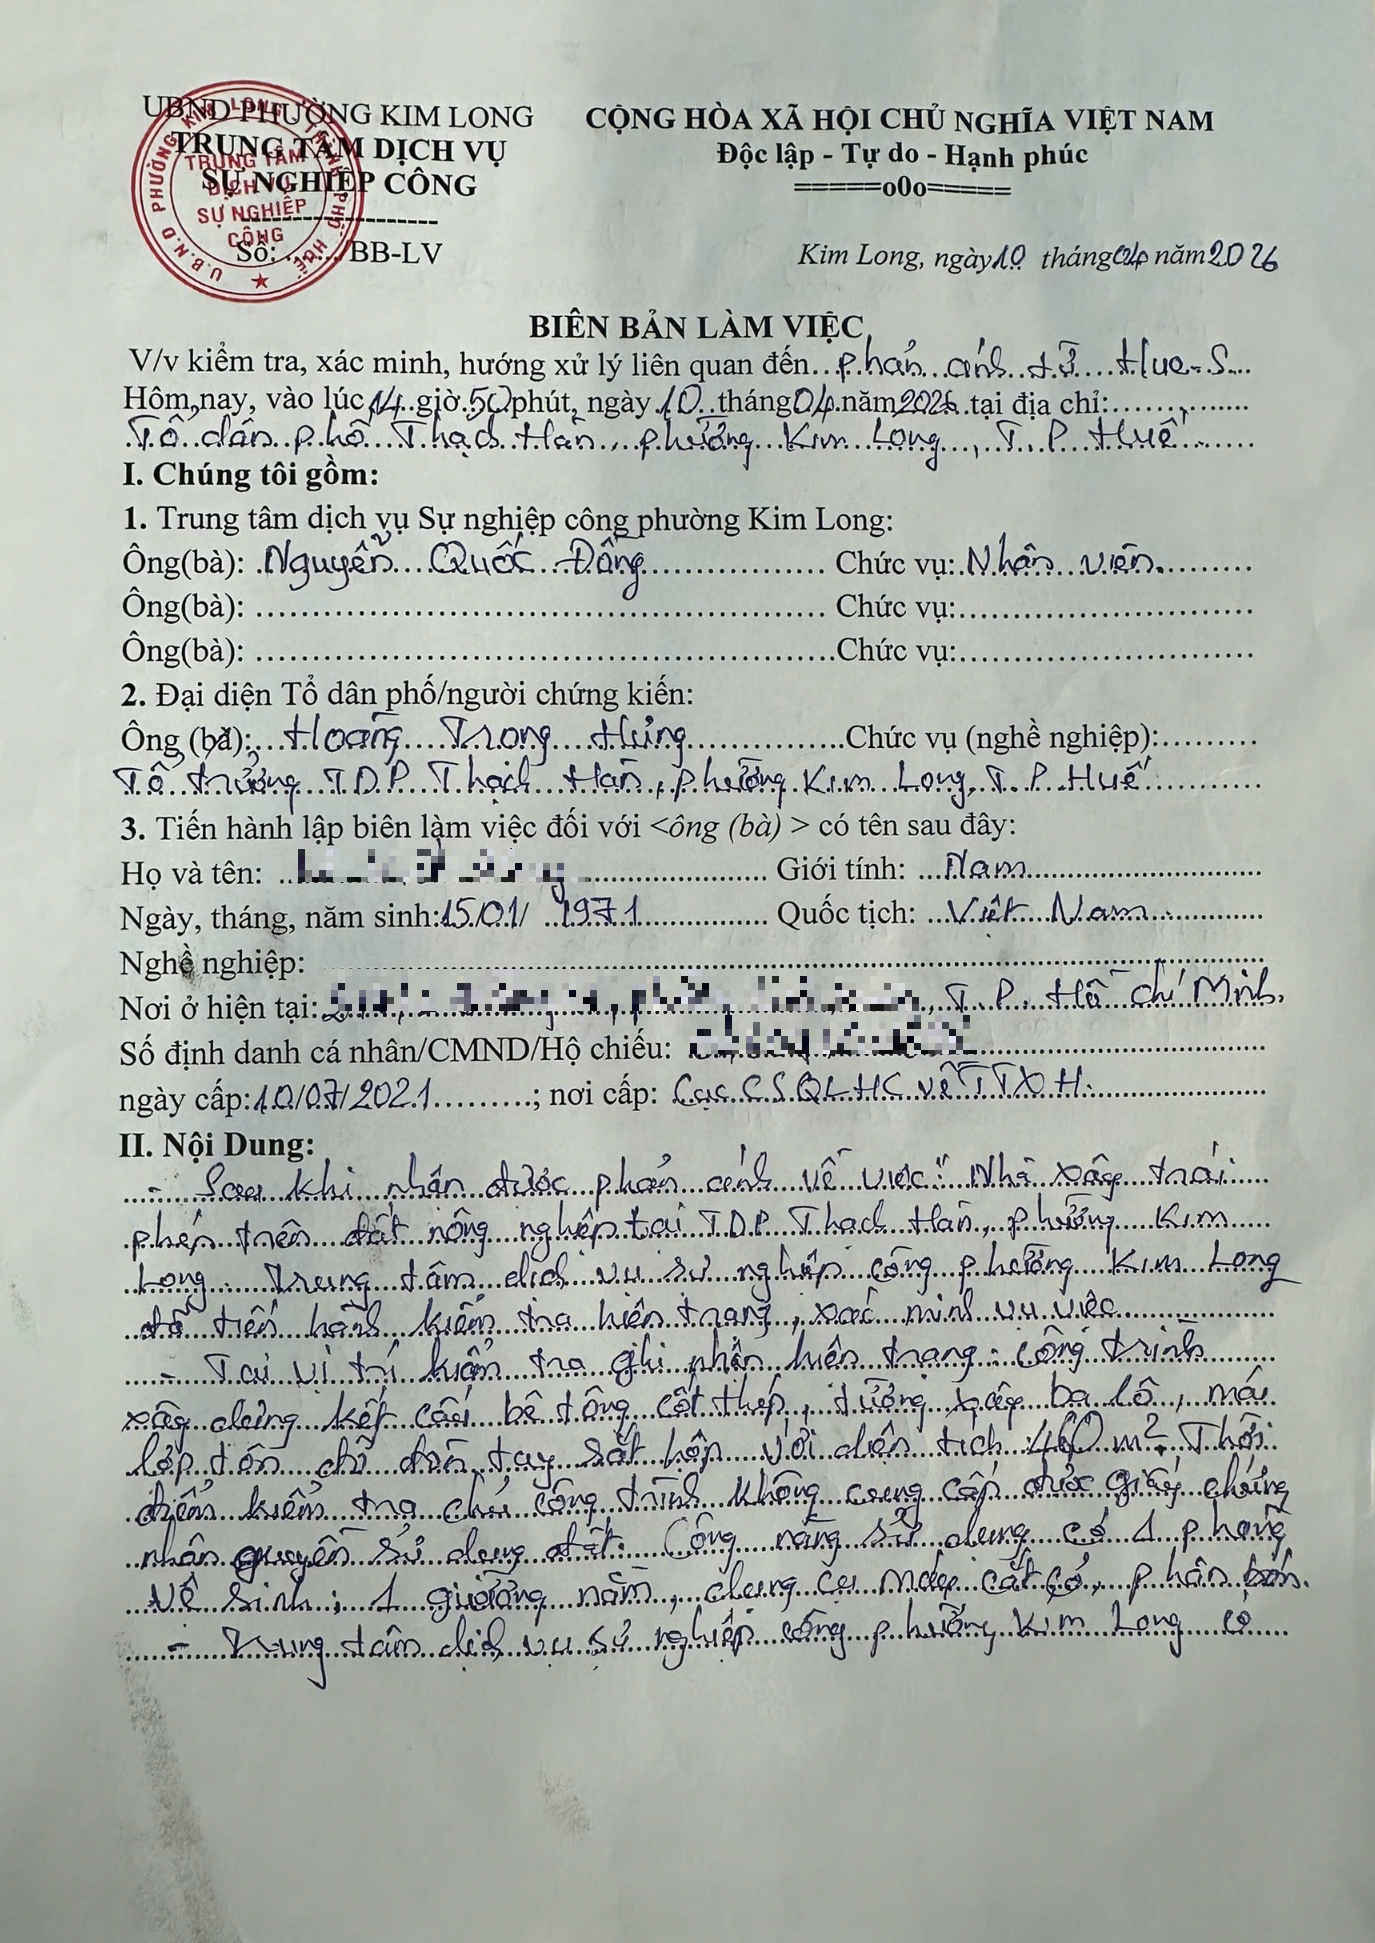 UBND PHƯỜNG KIM LONG
TRUNG TÂM DỊCH VỤ
SỰ NGHIỆP CÔNG
-------------------
Số: ....../BB-LV
U.B.N.D PHƯỜNG KIM LONG THÀNH PHỐ HUẾ
TRUNG TÂM
DỊCH VỤ
SỰ NGHIỆP
CÔNG
CỘNG HÒA XÃ HỘI CHỦ NGHĨA VIỆT NAM
Độc lập - Tự do - Hạnh phúc
=====o0o=====
Kim Long, ngày 10 tháng 04 năm 2026
BIÊN BẢN LÀM VIỆC
V/v kiểm tra, xác minh, hướng xử lý liên quan đến phản ánh từ Hue-S
Hôm nay, vào lúc 14 giờ 50 phút, ngày 10 tháng 04 năm 2026 tại địa chỉ:
Tổ dân phố Thạch Hàn, phường Kim Long, T.P Huế
I. Chúng tôi gồm:
1. Trung tâm dịch vụ Sự nghiệp công phường Kim Long:
Ông(bà): Nguyễn Quốc Đông Chức vụ: Nhân viên.
Ông(bà): Chức vụ:
Ông(bà): Chức vụ:
2. Đại diện Tổ dân phố/người chứng kiến:
Ông (bà): Hoàng Trọng Hùng Chức vụ (nghề nghiệp):
Tổ trưởng TDP Thạch Hàn, phường Kim Long, T.P Huế
3. Tiến hành lập biên làm việc đối với <ông (bà) > có tên sau đây:
Họ và tên: Giới tính: Nam
Ngày, tháng, năm sinh: 15/01/ 1971 Quốc tịch: Việt Nam
Nghề nghiệp:
Nơi ở hiện tại: , T.P. Hồ Chí Minh.
Số định danh cá nhân/CMND/Hộ chiếu:
ngày cấp: 10/07/2021; nơi cấp: Cục C.S.Q.L.H.C về TTXH
II. Nội Dung:
- Sau khi nhận được phản ánh về việc: "Nhà xây trái
phép trên đất nông nghiệp tại TDP Thạch Hàn, phường Kim
Long. Trung tâm dịch vụ sự nghiệp công phường Kim Long
đã tiến hành kiểm tra hiện trạng, xác minh vụ việc
- Tại vị trí kiểm tra ghi nhận hiện trạng: công trình
xây dựng kết cấu bê tông cốt thép, tường xây bờ lô, mái
lợp tôn, chỉ đòn tay sắt hộp với diện tích 460 m². Thời
điểm kiểm tra chủ công trình không cung cấp được giấy chứng
nhận quyền sử dụng đất. Công năng sử dụng có 1 phòng
vệ sinh; 1 giường nằm, dụng cụ máy cắt cỏ, phân bón.
- Trung tâm dịch vụ sự nghiệp công phường Kim Long có